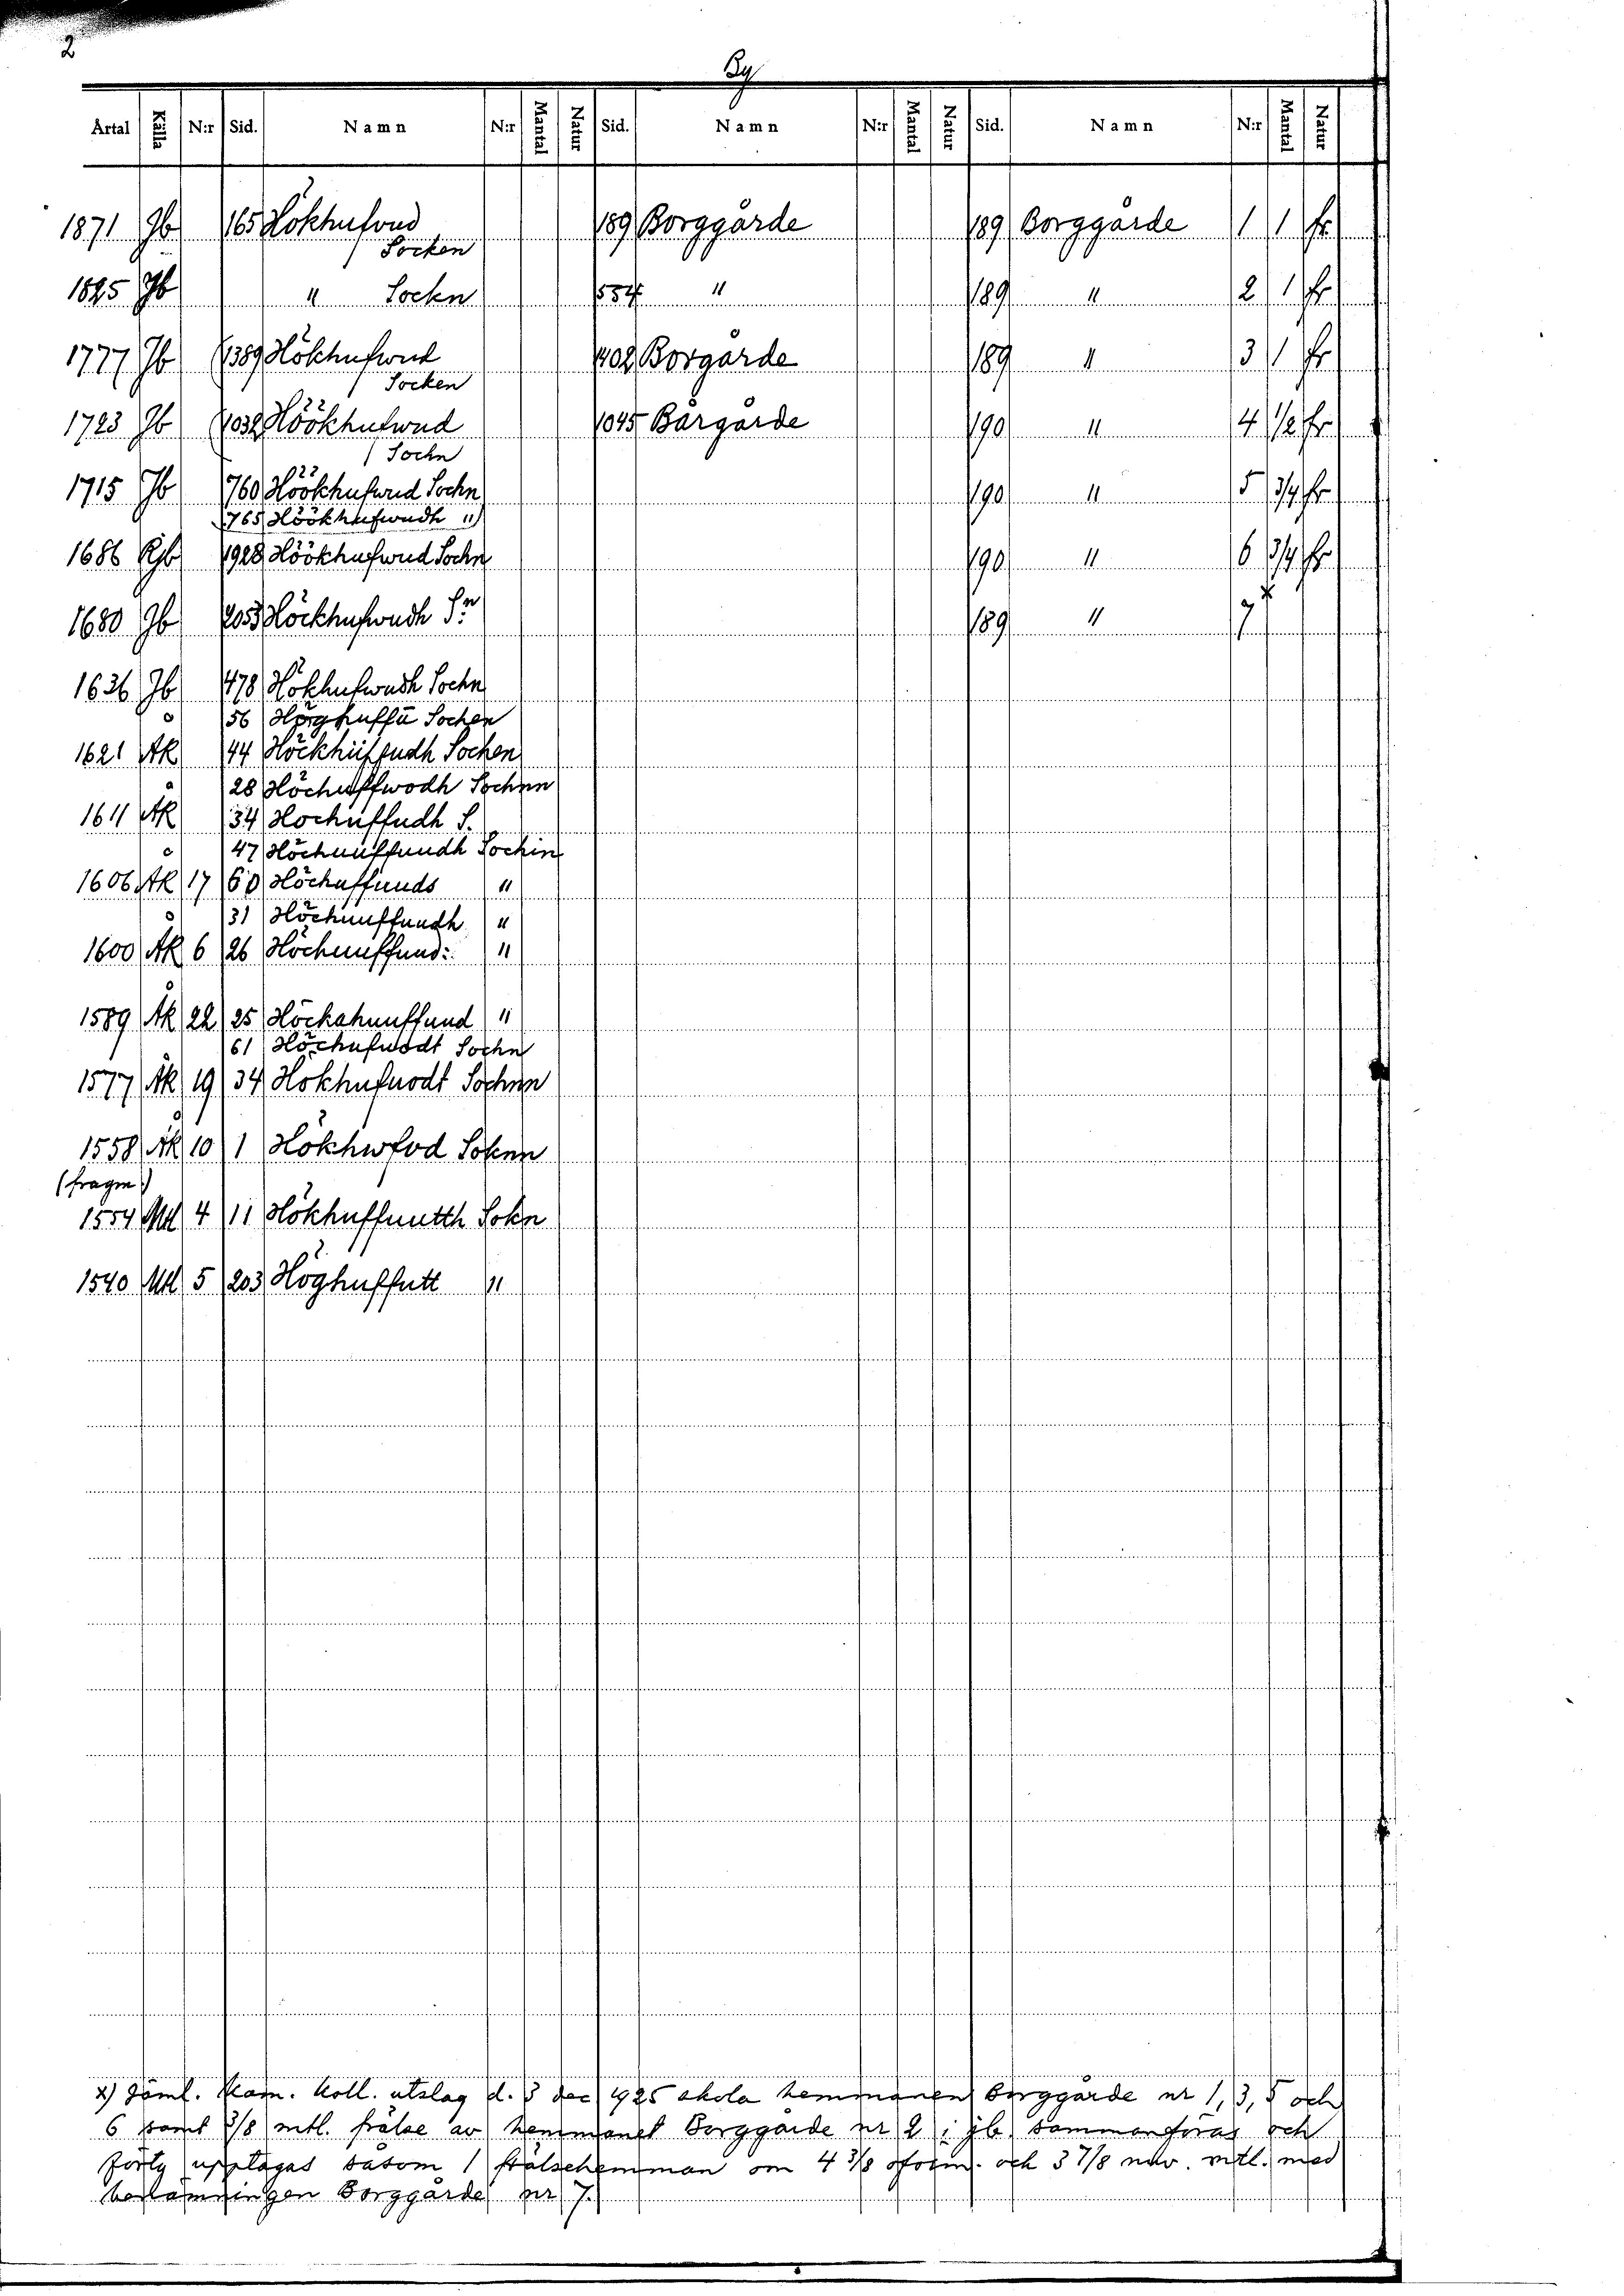 2
By
Årtal Källa N:r Sid. Namn N:r Mantal Natur Sid. Namn N:r Mantal Natur Sid. Namn N:r Mantal Natur
1871 Jb 165 Hökhufvud 189 Borggårde 189 Borggårde 1 1 fr
Socken
1825 Jb " Sockn 554 " 189 " 2 1 fr
1777 Jb 1389 Hökhufwud 1402 Borgårde 189 " 3 1 fr
Socken
1723 Jb 1032 Höökhufwud 1045 Bårgårde 190 " 4 1/2 fr
Sochn
1715 Jb 760 Höökhufwud Sochn 190 " 5 3/4 fr
765 Höökhufwudh "
1686 Rjb 1928 Höökhufwud Sochn 190 " 6 3/4 fr
1680 Jb 2053 Höckhufwudh Sn 189 " 7 x
1636 Jb 478 Hökhufwudh Sochn
56 Hörghuffü Sochen
1621 Äk 44 Höckhüffudh Sochen
28 Höchuffwodh Sochnn
1611 Äk 34 Hochuffudh S.
47 Höchuuffundh Sochin
1606 Äk 17 60 Höchuffunds "
31 Höchuuffundh "
1600 Äk 6 26 Höchuuffund: "
1589 Äk 22 25 Höckahuuffund "
61 Höchufwodt Sochn
1577 Äk 19 34 Hokhufuodt Sochnn
1558 Äk 10 1 Hökhwfvd Soknn
(fragm.)
1554 Mtl 4 11 Hökhuffuutth Sokn
1540 Mtl 5 203 Höghuffutt "
x) Jäml. Kam. Koll. utslag d. 3 dec 1925 skola hemmanen Borggårde nr 1, 3, 5 och
6 samt 3/8 mtl. frälse av hemmanet Borggårde nr 2 i jb. sammanföras och
förty upptagas såsom 1 frälsehemman om 4 3/8 oförm. och 3 7/8 nuv. mtl. med
benämningen Borggårde nr 7.